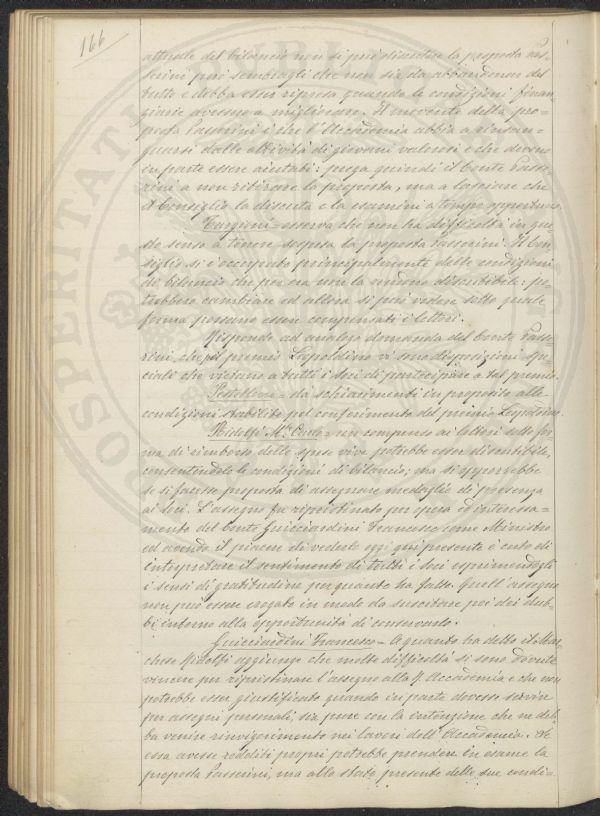 166
attuale del bilancio non si può discutere la proposta Pas=
serini può sembragli che non sia da abbandonar del
tutto e debba esser ripresa quando le condizioni finan
ziarie avessero a migliorare. Il movente della pro=
posta Passerini è che l'Accademia abbia a rinsan=
guarsi dalle attività di giovani valorosi e che devono
in parte essere aiutati: prega quindi il Conte Passe=
rini a non ritirare la proposta, ma a lasciare che
il Consiglio la discuta e la esamini a tempo opportuno.
Targioni = osserva che non ha difficoltà in que
sto senso a tenere sospesa la proposta Passerini. Il Con
siglio si è occupato principalmente delle condizioni
di bilancio che per ora non la rendono discutibile: po
trebbero cambiare ed allora si può vedere sotto quale
forma possano essere compensati i lettori.
Risponde ad analoga domanda del Conte Passe
rini, che pel premio Leopoldino vi sono disposizioni spe
ciali che vietano a tutti i soci di partecipare a tal premio
= dà schiarimenti in proposito alle
condizioni stabilite pel conferimento del premio Leopoldino.
Ridolfi M.se Carlo = un compenso ai lettori sotto for
ma di rimborso delle spese vive potrebbe esser discutibile,
consentendolo le condizioni di bilancio; ma si opporrebbe
se si facesse proposta di assegnare medaglie di presenza
ai soci. L'assegno fu ripristinato per opera ed interessa=
mento del Conte Guicciardini Francesco come Ministro
ed avendo il piacere di vederlo oggi qui presente è certo di
interpretare il sentimento di tutti i soci esprimendogli
i sensi di gratitudine per quanto ha fatto. Quell'assegno
non può essere erogato in modo da suscitare poi dei dub=
bi intorno alla opportunità di conservarlo.
Guicciardini Francesco = A quanto ha detto il Mar
chese Ridolfi aggiunge che molte difficoltà si sono dovute
vincere per ripristinare l'assegno alla R. Accademia e che non
potrebbe esser giustificato quando in parte dovesse servire
per assegni personali, sia pure con la intenzione che ne deb=
ba venire rinvigorimento nei lavori dell'Accademia. Se
essa avesse redditi propri potrebbe prendere in esame la
proposta Passerini, ma allo stato presente delle sue condi=